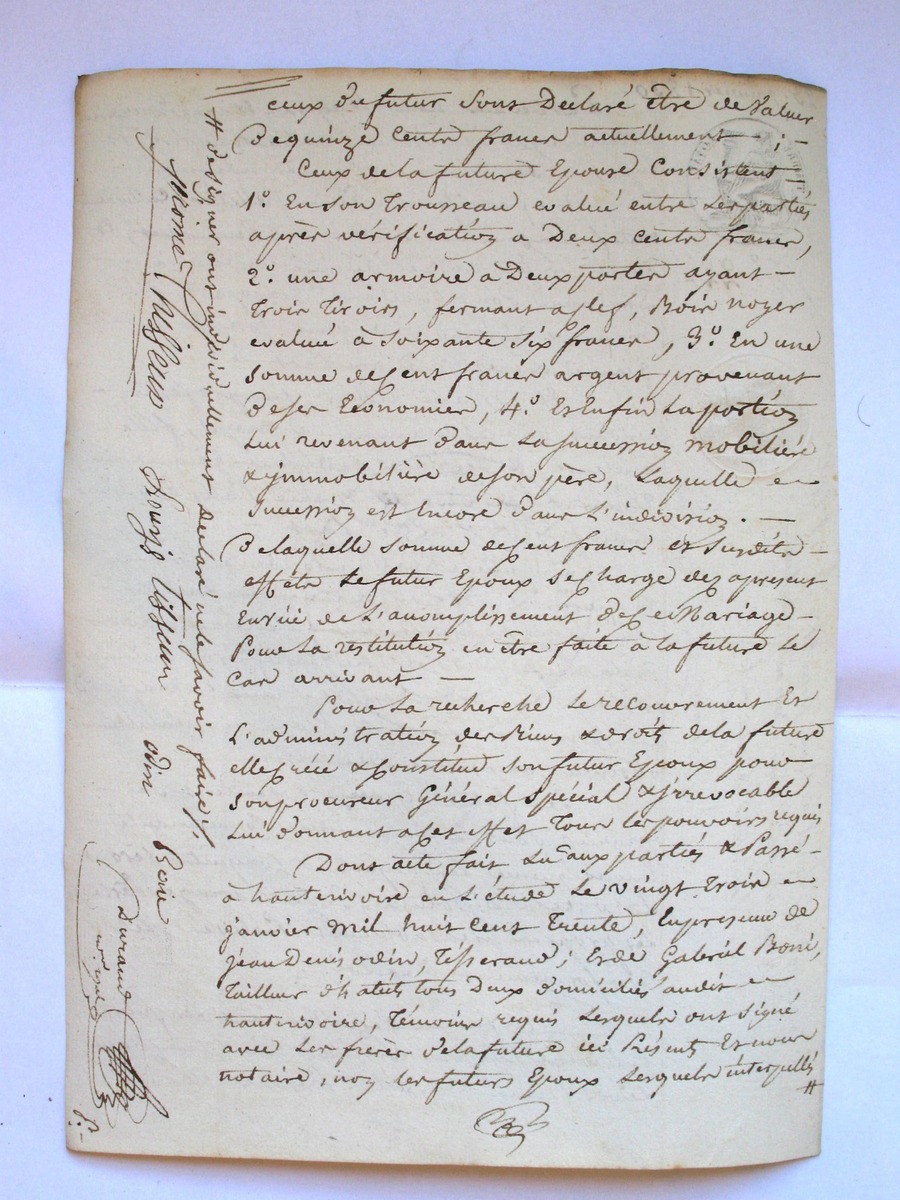 ceux du futur sont Declaré être de valeur
De quinze cents francs actuellement — ; —
Ceux de la future Epouse Consistent
1.º En son Trousseau evalué entre les partiés
après vérification a Deux cents francs,
2.º une armoire a Deux portes ayant —
Trois Tiroirs, fermant a clef, Bois noyer
evalué à soixante six francs, 3.º En une
somme de Cent francs argent provenant
De ses Economies, 4.º Et Enfin La portion
Lui revenant Dans La succession mobilière
& immobilière de son père, Laquelle
succession est Encore Dans L'indivision. —
De laquelle somme de Cent francs et susdits —
effets Le futur Epoux se charge dez apresent
En vüe de L'acomplissement de Ce Mariage —
Pour La restitution en être faite à la future Le
Cas arrivant —
Pour La recherche Le recouvrement Et
L'administration des Biens & droits de la future
elle Créé & Constitue son futur Epoux pour
son procureur Général spécial & irrevocable
Lui donnant a Cet effet Tous les pouvoirs requis
Dont acte fait Lu aux parties & Passé —
à hauterivoire en L'étude Le vingt Trois
janvier mil huit cent Trente, En presence de
jean Denis odin, Tisserand ; Et de Gabriel Boni,
Tailleur d'habits tous Deux domiciliés audit
hauterivoire, Témoins requis Lesquels ont signé
avec Les frères de la future ici Présents Et nous
notaire, non les futurs Epoux Lesquels interpellés #
# de signer ont individuellement declaré ne le savoir faire /.
Louis Tisseur odin Boni
Durand